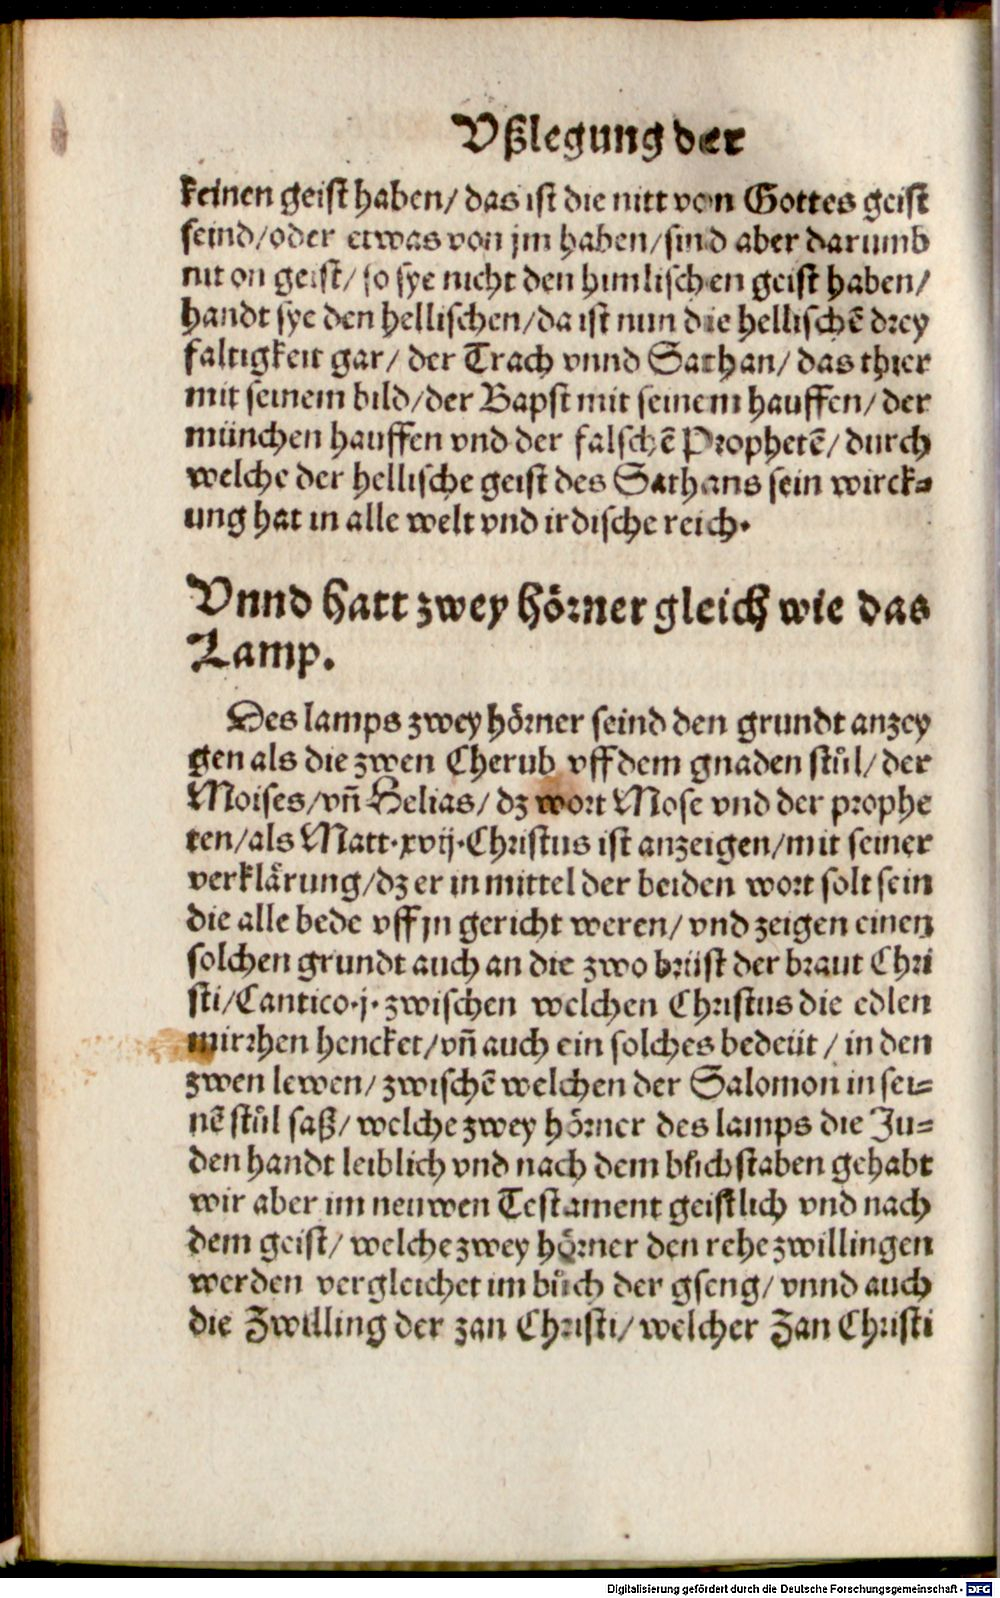 Vßlegung der
keinen geist haben/ das ist die nitt von Gottes geist
seind/oder etwas von jm haben/sind aber darumb
nit on geist/ so sye nicht den himlischen geist haben/
handt sye den hellischen/da ist nun die hellischē drey
faltigkeit gar/ der Trach vnnd Sathan/ das thier
mit seinem bild/der Bapst mit seinem hauffen/ der
münchen hauffen vnd der falschē Prophetē/ durch
welche der hellische geist des Sathans sein wirck-
ung hat in alle welt vnd irdische reich.
Vnnd hatt zwey hörner gleich wie das
Lamp.
Des lamps zwey hörner seind den grundt anzey
gen als die zwen Cherub vff dem gnaden stůl/ der
Moises/vñ Helias/ dz wort Mose vnd der prophe
ten/als Matt.xvij.Christus ist anzeigen/mit seiner
verklärung/dz er in mittel der beiden wort solt sein
die alle bede vff jn gericht weren/ vnd zeigen einen
solchen grundt auch an die zwo brüst der braut Chri
sti/Cantico.j.zwischen welchen Christus die edlen
mirrhen hencket/vñ auch ein solches bedeüt / in den
zwen lewen/ zwischē welchen der Salomon in sei-
nē stůl saß/ welche zwey hörner des lamps die Ju-
den handt leiblich vnd nach dem bůchstaben gehabt
wir aber im neuwen Testament geistlich vnd nach
dem geist/ welche zwey hörner den rehe zwillingen
werden vergleichet im bůch der gseng/ vnnd auch
die Zwilling der zan Christi/ welcher Zan Christi
Digitalisierung gefördert durch die Deutsche Forschungsgemeinschaft - DFG